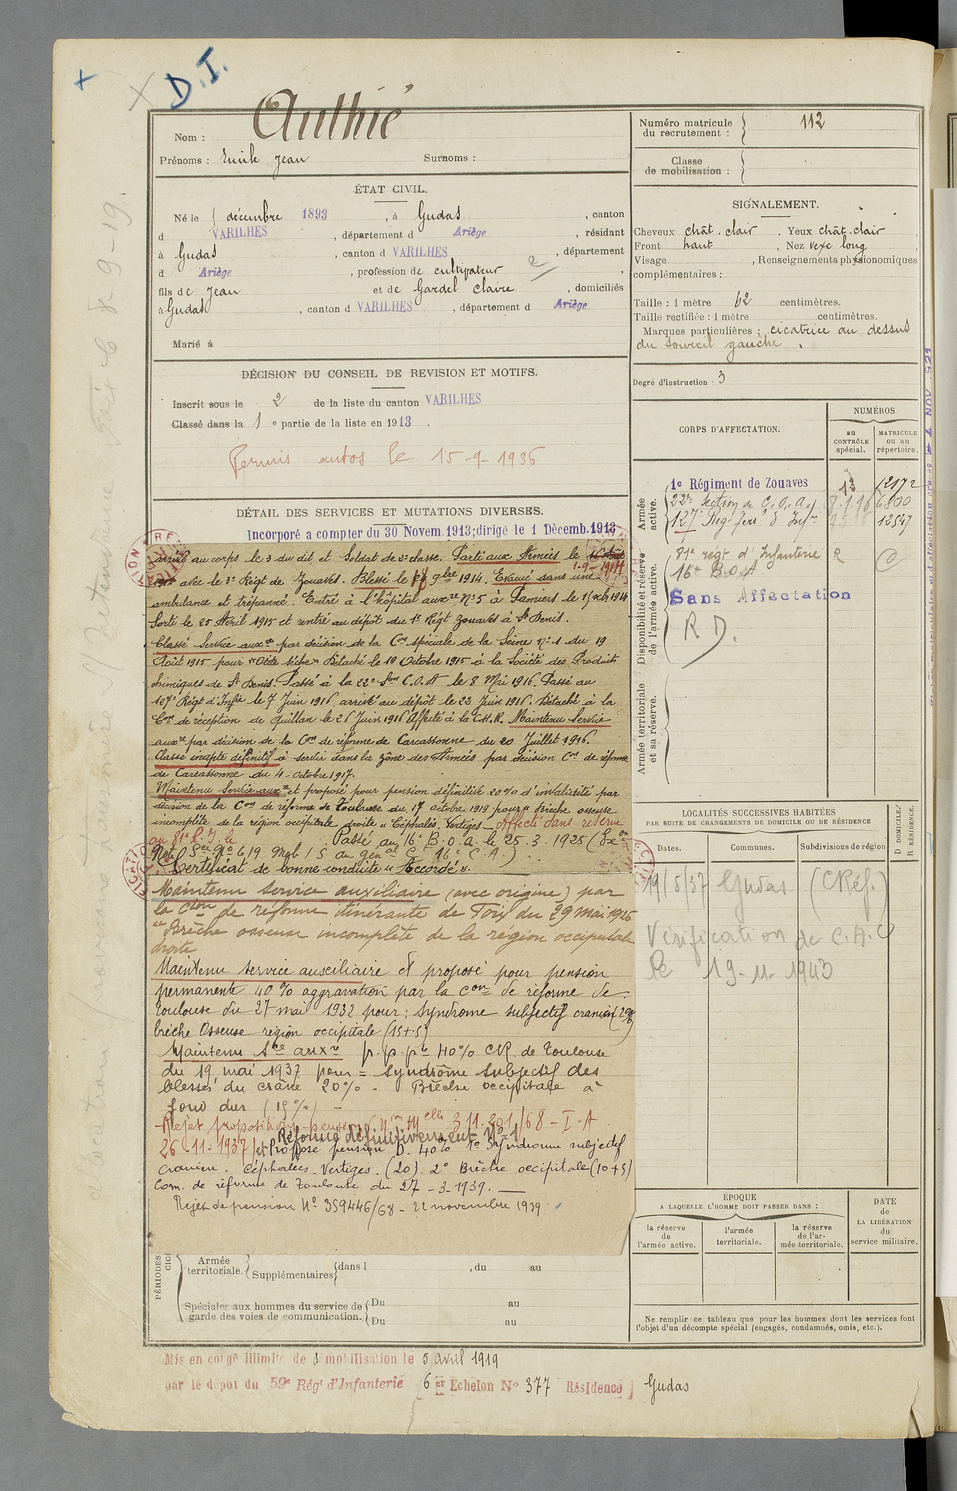 D.I.
Nom : Authié
Prénoms : Emile Jean Surnoms :
ÉTAT CIVIL.
Né le décembre 1893, à Gudas, canton
d VARILHES, département d Ariège, résidant
à Gudas, canton d VARILHES, département
d Ariège, profession de cultivateur 2
fils de Jean et de Gardel Claire, domiciliés
à Gudas, canton d VARILHES, département d Ariège
Marié à
DÉCISION DU CONSEIL DE REVISION ET MOTIFS.
Inscrit sous le 2 de la liste du canton VARILHES
Classé dans la 1 e partie de la liste en 1913.
Permis autos le 15-9-1936
DÉTAIL DES SERVICES ET MUTATIONS DIVERSES.
Incorporé a compter du 30 Novem. 1913; dirigé le 1 Décemb. 1913
arrivé au corps le 3 du dit et Soldat de 2e classe. Parti aux Armées le
1-9-1914
avec le 3e Régt de Zouaves. Blessé le 9bre 1914. Evacué sans une
ambulance et trépanné. Entré à l'hôpital auxre No 5 à Pamiers le 1914
Sorti le 25 Avril 1915 et rentré au dépôt du 1er Régt Zouaves à St Denis.
Classé Service auxre par décision de la Con spéciale de la Seine No 1 du 19
Août 1915 pour "Otite sèche" Détaché le 10 Octobre 1915 à la Société des Produits
chimiques de St Denis. Passé à la 22e Son C.O.A le 8 Mai 1916. Passé au
127e Régt d'Infie le 7 Juin 1916, arrivé au dépôt le 22 Juin 1916. Détaché à la
Con de réception de Quillan le 26 Juin 1916 Affecté à la C.H.R. Maintenu Service
auxre par décision de la Con de réforme de Carcassonne du 20 Juillet 1916.
Classé inapte définitif à servir dans la zone des Armées par décision Con de réforme
de Carcassonne du 4 octobre 1917.
Maintenu Service auxre et proposé pour pension définitive 20% d'invalidité par
décision de la Con de réforme de Toulouse du 17 octobre 1919 pour "Brèche osseuse
incomplète de la région occipitale droite" Céphalés Vertiges. Affecté dans réserve
au 81e R.I. le Passé au 16e B.O.A. le 25.3.1925
No 619 Mob / S du 16e C.A.)
Certificat de bonne conduite "Accordé".
Maintenu service auxiliaire (avec origine) par
la Cion de réforme itinérante de Foix du 29 mai 1926
"Brèche osseuse incomplète de la région occipitale
droite
Maintenu service auxiliaire et proposé pour pension
permanente 40% aggravation par la Con de réforme de
Toulouse du 27 mai 1932 pour : Syndrome subjectif cranien
brèche Osseuse région occipitale (15+5)
Maintenu Sce auxre p.p.pte 40% CR de Toulouse
du 19 mai 1937 pour = Syndrome Subjectif des
blessés du crâne 20% - Brèche occipitale à
fond dur (15%) -
Rejet proposition pension 311.201/68-I-A
26-11-1937
Réformé définitivement No 1
et Proposé pension D. 40% 1o Syndrome subjectif
cranien. Céphalées. Vertiges. (20). 2o Brèche occipitale (10+5)
Com. de réforme de Toulouse du 27-3-1939.
Rejet de pension No 359446/68 - 22 novembre 1939
PÉRIODES
Armée territoriale. Supplémentaires dans l , du au
Spéciales aux hommes du service de garde des voies de communication. Du au
Du au
Mis en congé illimité de démobilisation le 5 avril 1919
par le dépôt du 59e Régt d'Infanterie 6er Echelon No 377 Résidence Gudas
Numéro matricule du recrutement : 112
Classe de mobilisation :
SIGNALEMENT.
Cheveux chât. clair. Yeux chât. clair
Front haut, Nez vexe long,
Visage , Renseignements physionomiques
complémentaires :
Taille : 1 mètre 62 centimètres.
Taille rectifiée : 1 mètre centimètres.
Marques particulières : cicatrice au dessus
du sourcil gauche.
Degré d'instruction : 3
CORPS D'AFFECTATION.
NUMÉROS
au CONTRÔLE spécial.
MATRICULE ou au répertoire.
Armée active.
1e Régiment de Zouaves 13 12172
22e Section de C.O.A. 8.1.16 6800
127e Reg. d'Infie 12547
Disponibilité et réserve de l'armée active.
81e regt d'Infanterie R
16e B.O.A.
Sans Affectation
R D.
Armée territoriale et sa réserve.
LOCALITÉS SUCCESSIVES HABITÉES
PAR SUITE DE CHANGEMENTS DE DOMICILE OU DE RÉSIDENCE
Dates. Communes. Subdivisions de région
D DOMICILE.
R RÉSIDENCE.
19/5/37 Gudas (CRéf.)
Vérification de C.A.C
le 19-11-1943
ÉPOQUE
A LAQUELLE L'HOMME DOIT PASSER DANS :
la réserve de l'armée active.
l'armée territoriale.
la réserve de l'armée territoriale.
DATE de LA LIBÉRATION du service militaire.
Ne remplir ce tableau que pour les hommes dont les services font
l'objet d'un décompte spécial (engagés, condamnés, omis, etc.).